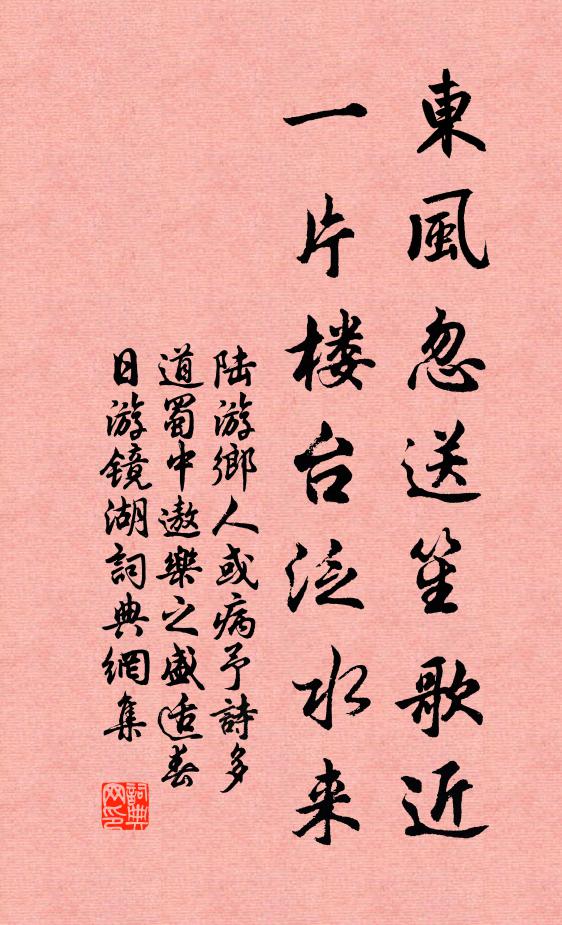 東風忽送笙歌近
一片楼台泛水来
陆游鄉人或病予詩多
道蜀中遨樂之盛适春
日游镜湖詞典網集
詞典网印